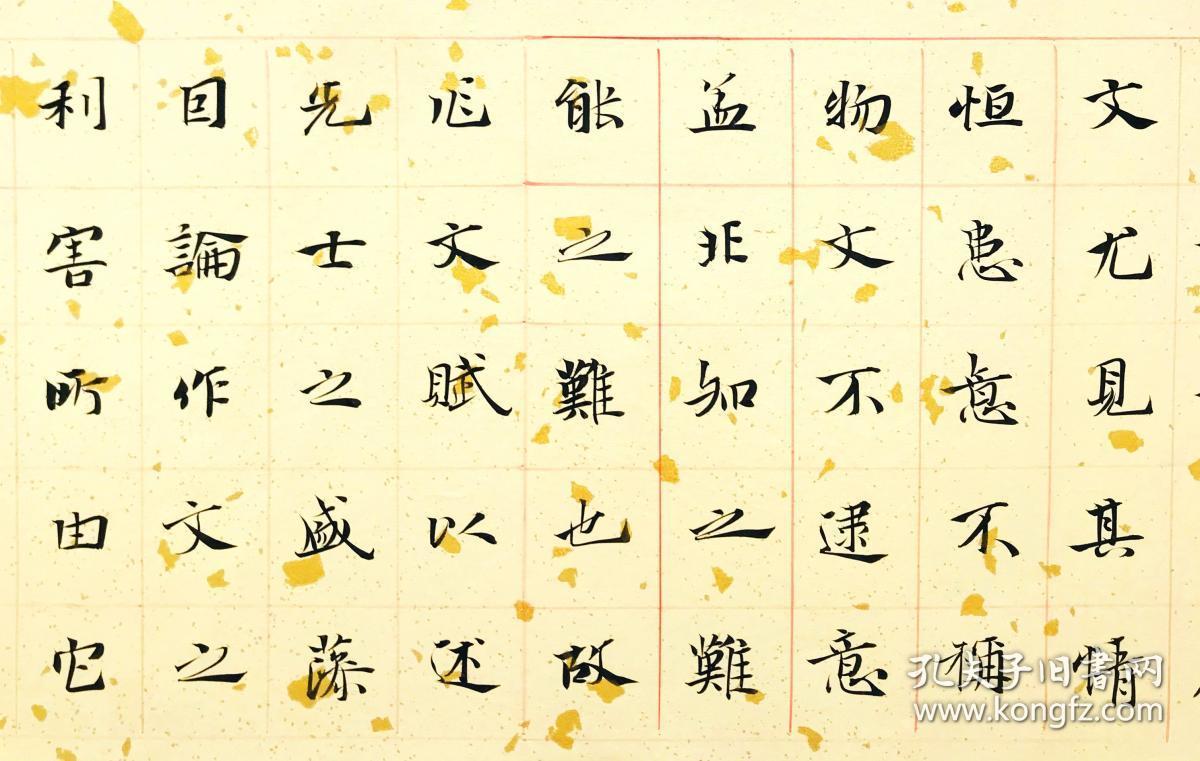 文尤見其情
恒患意不稱
物文不逮意
盖非知之難
能之難也故
作文賦以述
先士之盛藻
因論作文之
利害所由它
孔夫子旧書网
www.kongfz.com